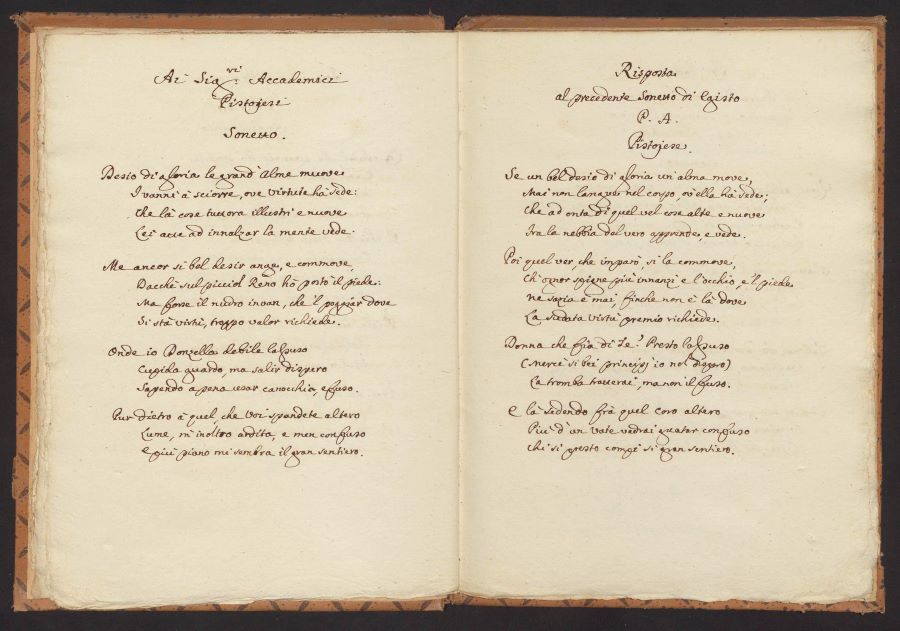 Ai Sigri Accademici
Pistojesi
Sonetto.
Desio di gloria le grand' Alme muove
I vanni à sciorre, ove virtute ha sede:
Che là cose tuttora illustri e nuove
Lei atte ad innalzar la mente vede.
Me ancor sì bel desir ange, e commove,
Dacchè sul picciol Reno hò posto il piede:
Ma forse il nudro invan, che 'l poggiar dove
Si stà virtù, troppo valor richiede.
Onde io Donzella debile la
guardo, ma salir dispero
Sapendo a pena usar canocchia, e fuso.
Pur dietro à quel, che voi spandete altero
Lume, m'inoltro ardita, e men confuso
E più piano mi sembra il gran sentiero.
Risposta
al precedente Sonetto di Egisto
P. A.
Pistojese.
Se un bel desio di gloria un' alma move,
Mai non langue nel corpo, ov'ella ha sede;
Che ad onta di quel vel cose alte e nuove
Fra la nebbia del vero apprende, e vede.
Poi quel ver, che imparò, sì la commove,
Ch' ognor spigne più innanzi e l'occhio, e 'l piede
Ne sazia è mai, finche non è là dove
La sudata virtù premio richiede.
Donna che fia di Te? Presto
(Mercè sì bei principj io nol dispero)
La tromba tratterai, ma non il fuso.
E là sedendo frà quel coro altero
Più d'un vate vedrai guatar confuso
Chi sì presto compì sì gran sentiero.